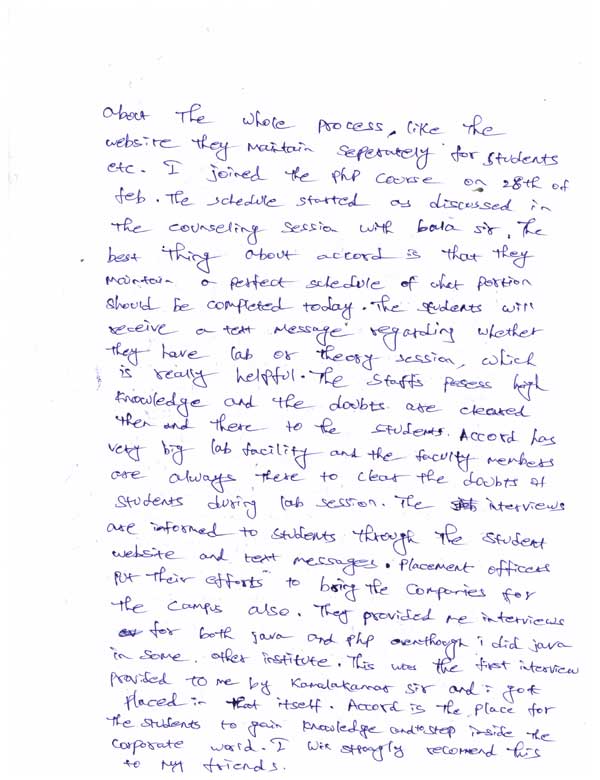 about The whole process, like the
website they maintain seperately for students
etc. I joined the php course on 28th of
feb. The schedule started as discussed in
the counseling session with bala sir. The
best thing about accord is that they
maintain a perfect schedule of what portion
should be completed today. The students will
receive a text message regarding whether
they have lab or theory session, which
is really helpful. The staffs posess high
knowledge and the doubts are cleared
then and there to the students. Accord has
very big lab facility and the faculty members
are always there to clear the doubts of
students during lab session. The interviews
are informed to students through the student
website and text messages. Placement officers
put their efforts to bring the companies for
the campus also. They provided me interviews
for both java and php eventhough i did java
in some other institute. This was the first interview
provided to me by sir and i got
placed in that itself. Accord is the place for
the students to gain knowledge and step inside the
corporate world. I will strongly recomend this
to my friends.